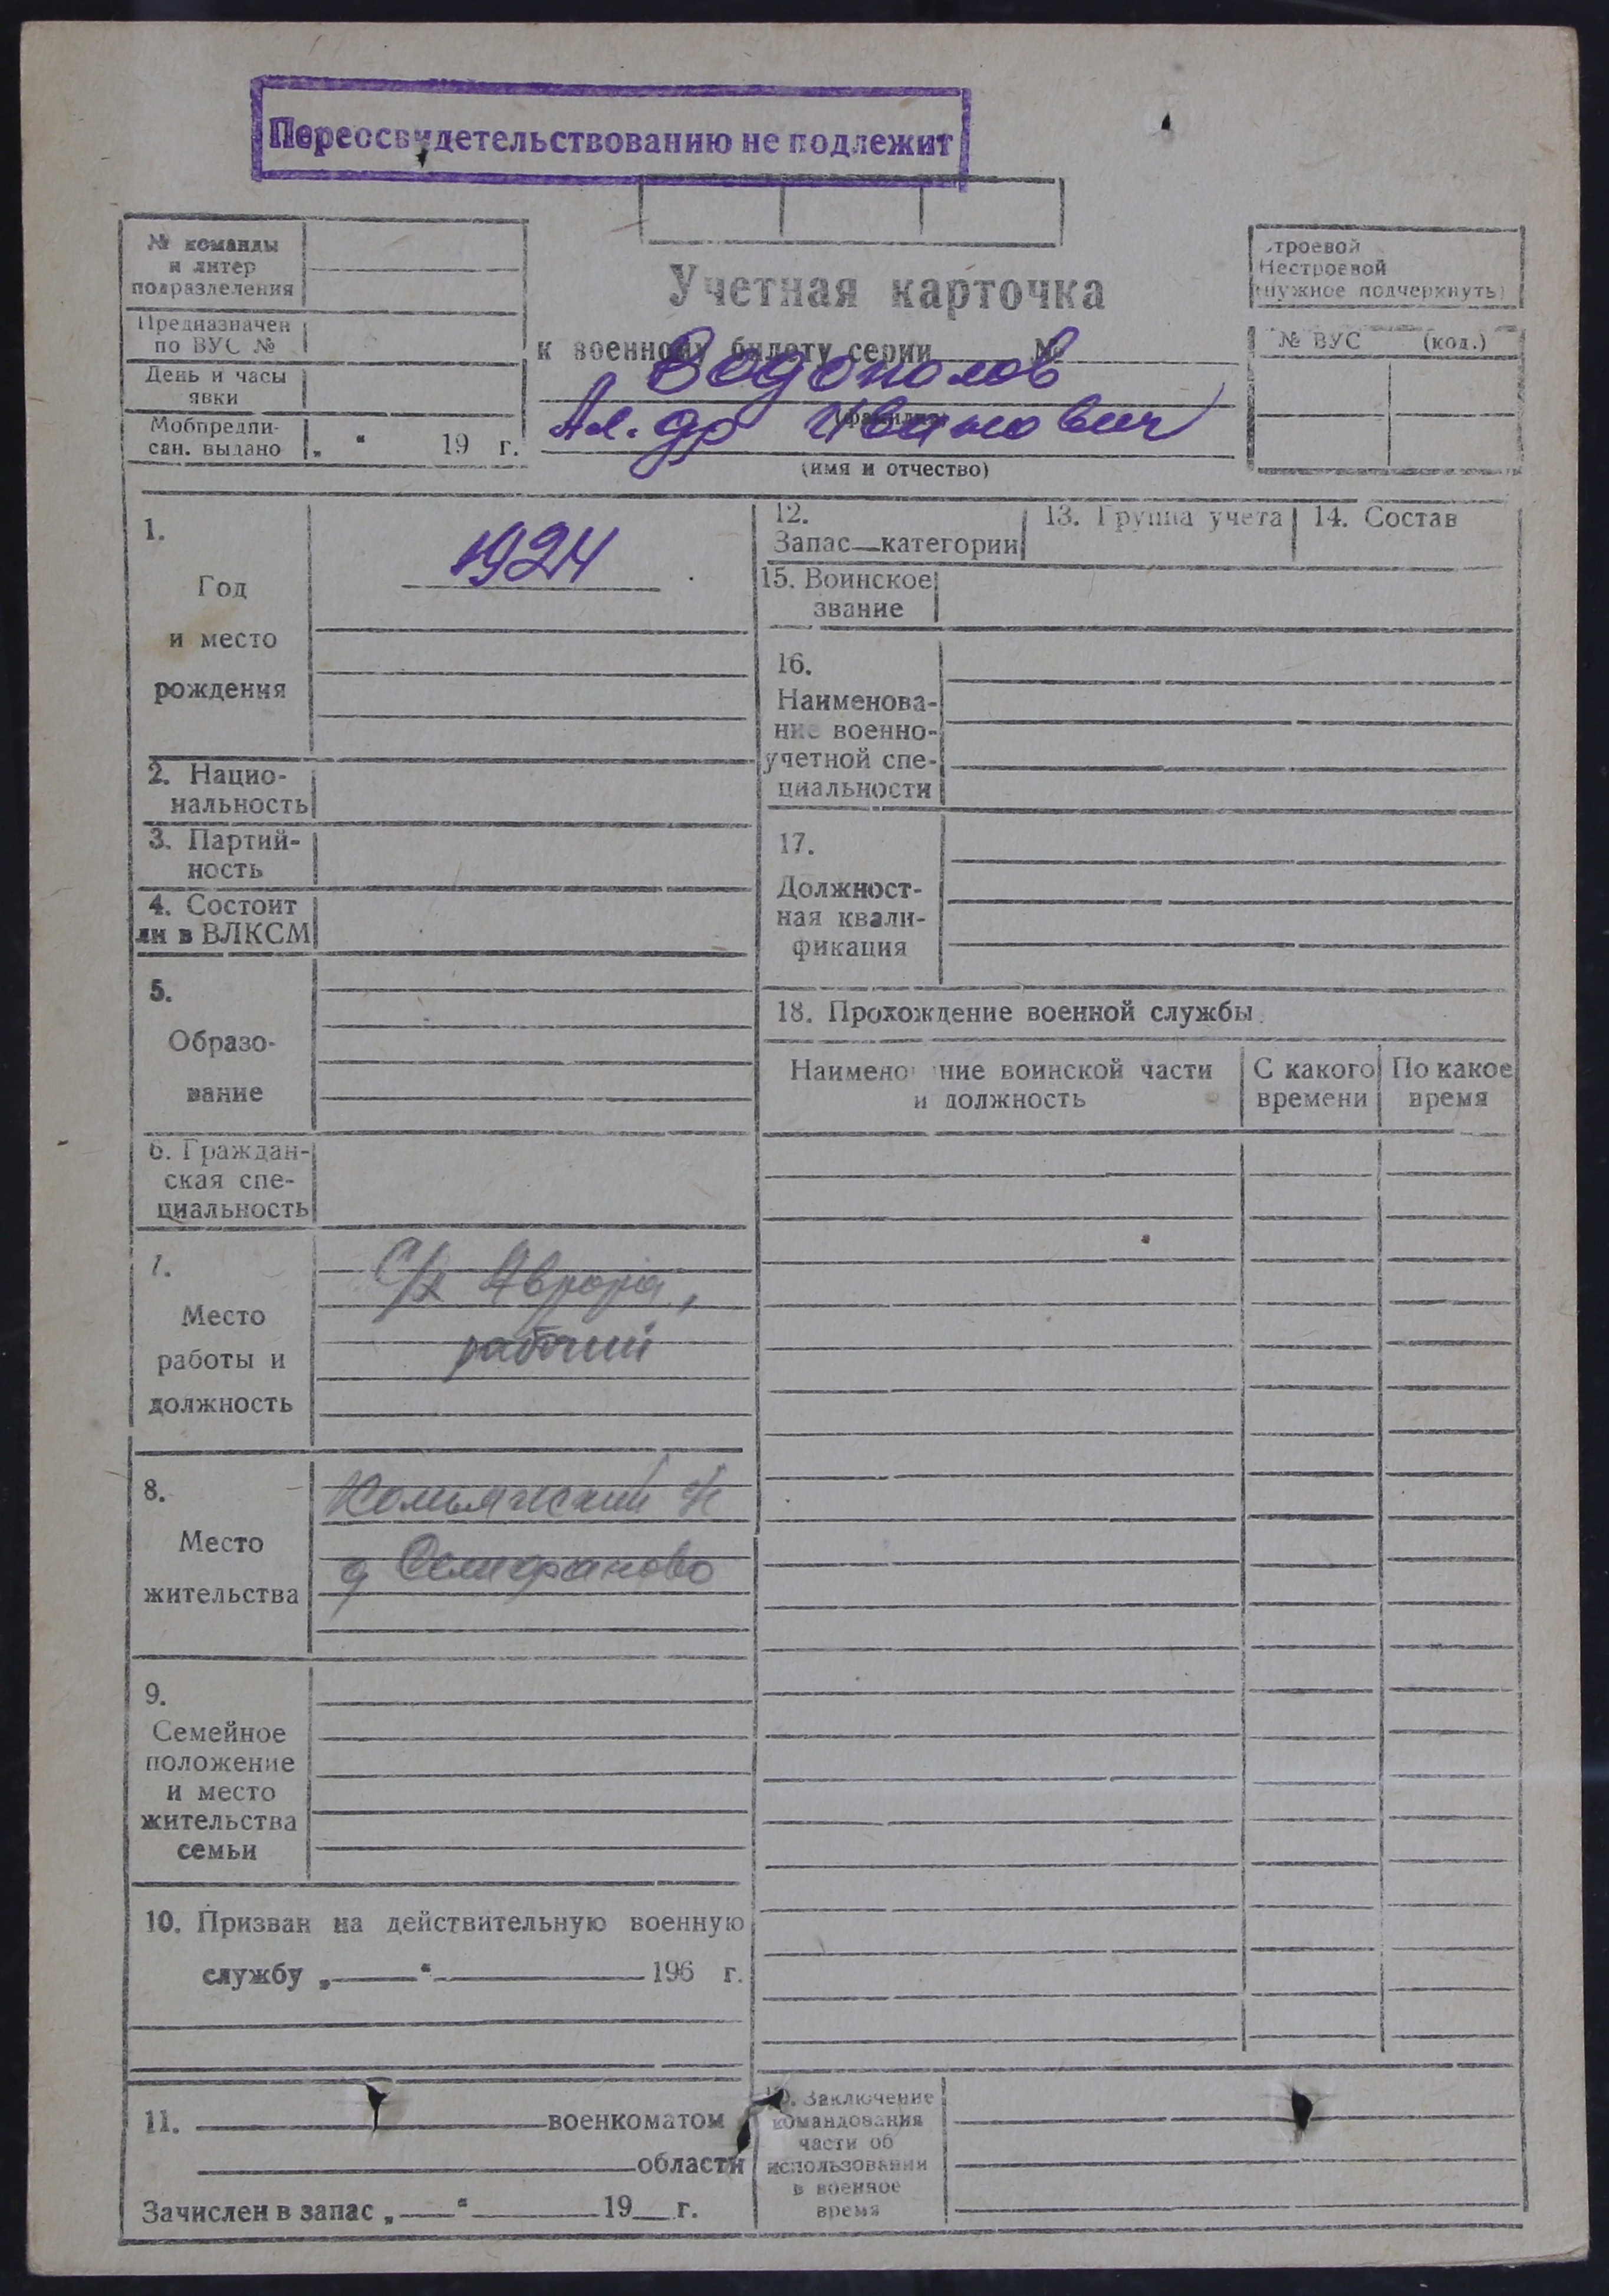 Переосвидетельствованию не подлежит
№ команды
и литер
подразделения
Предназначен
по ВУС №
День и часы
явки
Мобпредпи-
сан. выдано „ “ 19 г.
Учетная карточка
к военному билету серии №
Водополов
(фамилия)
Ал-др Иванович
(имя и отчество)
Строевой
Нестроевой
(нужное подчеркнуть)
№ ВУС (код.)
1.
Год
и место
рождения
1924
2. Нацио-
нальность
3. Партий-
ность
4. Состоит
ли в ВЛКСМ
5.
Образо-
вание
6. Граждан-
ская спе-
циальность
7.
Место
работы и
должность
С/х Аврора,
рабочий
8.
Место
жительства
д
9.
Семейное
положение
и место
жительства
семьи
10. Призван на действительную военную
службу „ “ 196 г.
11. военкоматом
области
Зачислен в запас „ “ 19 г.
12.
Запас—категории
13. Группа учета
14. Состав
15. Воинское
звание
16.
Наименова-
ние военно-
учетной спе-
циальности
17.
Должност-
ная квали-
фикация
18. Прохождение военной службы
Наименование воинской части
и должность
С какого
времени
По какое
время
19. Заключение
командования
части об
использовании
в военное
время